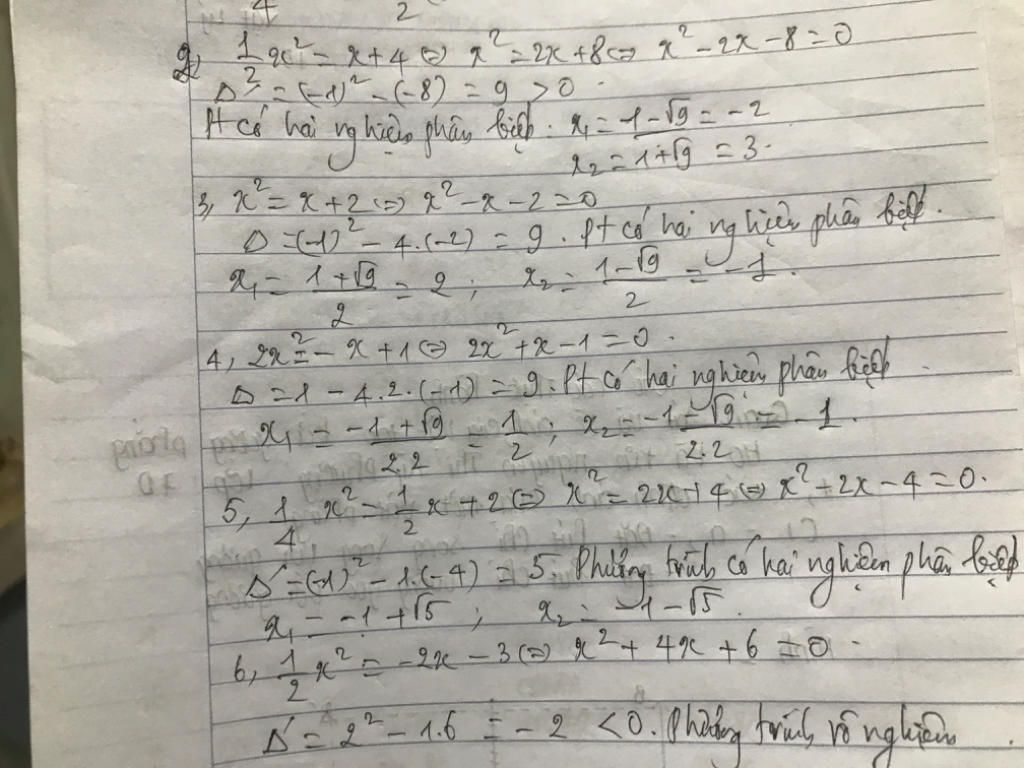 4 2
2, 1/2 x² = x + 4 ⇔ x² = 2x + 8 ⇔ x² - 2x - 8 = 0
Δ' = (-1)² - (-8) = 9 > 0
Pt có hai nghiệm phân biệt. x₁ = 1 - √9 = -2
x₂ = 1 + √9 = 3.
3, x² = x + 2 ⇔ x² - x - 2 = 0
Δ = (-1)² - 4.(-2) = 9. Pt có hai nghiệm phân biệt.
x₁ = (1 + √9)/2 = 2 ; x₂ = (1 - √9)/2 = -1.
4, 2x² = -x + 1 ⇔ 2x² + x - 1 = 0.
Δ = 1 - 4.2.(-1) = 9. Pt có hai nghiệm phân biệt.
x₁ = (-1 + √9)/2.2 = 1/2 ; x₂ = (-1 - √9)/2.2 = -1.
5, 1/4 x² = 1/2 x + 2 ⇔ x² = 2x + 4 ⇔ x² - 2x - 4 = 0.
Δ' = (-1)² - 1.(-4) = 5. Phương trình có hai nghiệm phân biệt
x₁ = -1 + √5 ; x₂ = -1 - √5.
6, 1/2 x² = -2x - 3 ⇔ x² + 4x + 6 = 0.
Δ' = 2² - 1.6 = -2 < 0. Phương trình vô nghiệm.